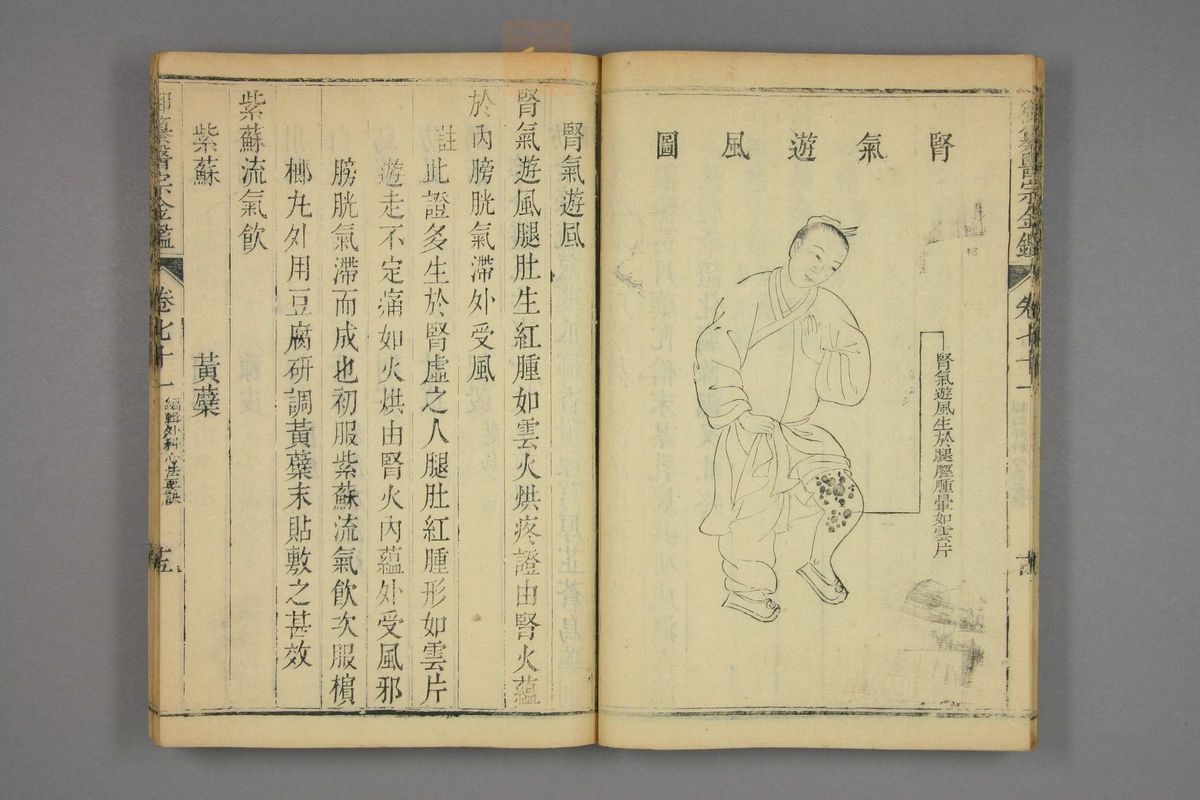 腎氣遊風圖
腎氣遊風生於腿脛腫暈如雲片
腎氣遊風
腎氣遊風腿肚生紅腫如雲火烘疼證由腎火蘊
於內膀胱氣滯外受風
註此證多生於腎虛之人腿肚紅腫形如雲片
遊走不定痛如火烘由腎火內蘊外受風邪
膀胱氣滯而成也初服紫蘇流氣飲次服檳
榔丸外用豆腐研調黃蘗末貼敷之甚效
紫蘇流氣飲
紫蘇 黃蘗
御纂醫宗金鑑 卷七十一 編輯外科心法要訣 十五